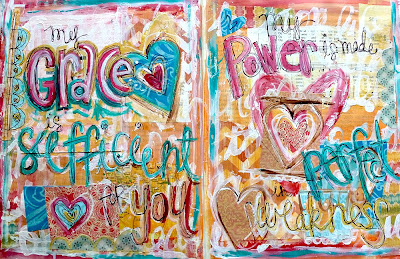 my
GRACE
is
sufficient
for you
my
Power is made
perfect
in
weakness